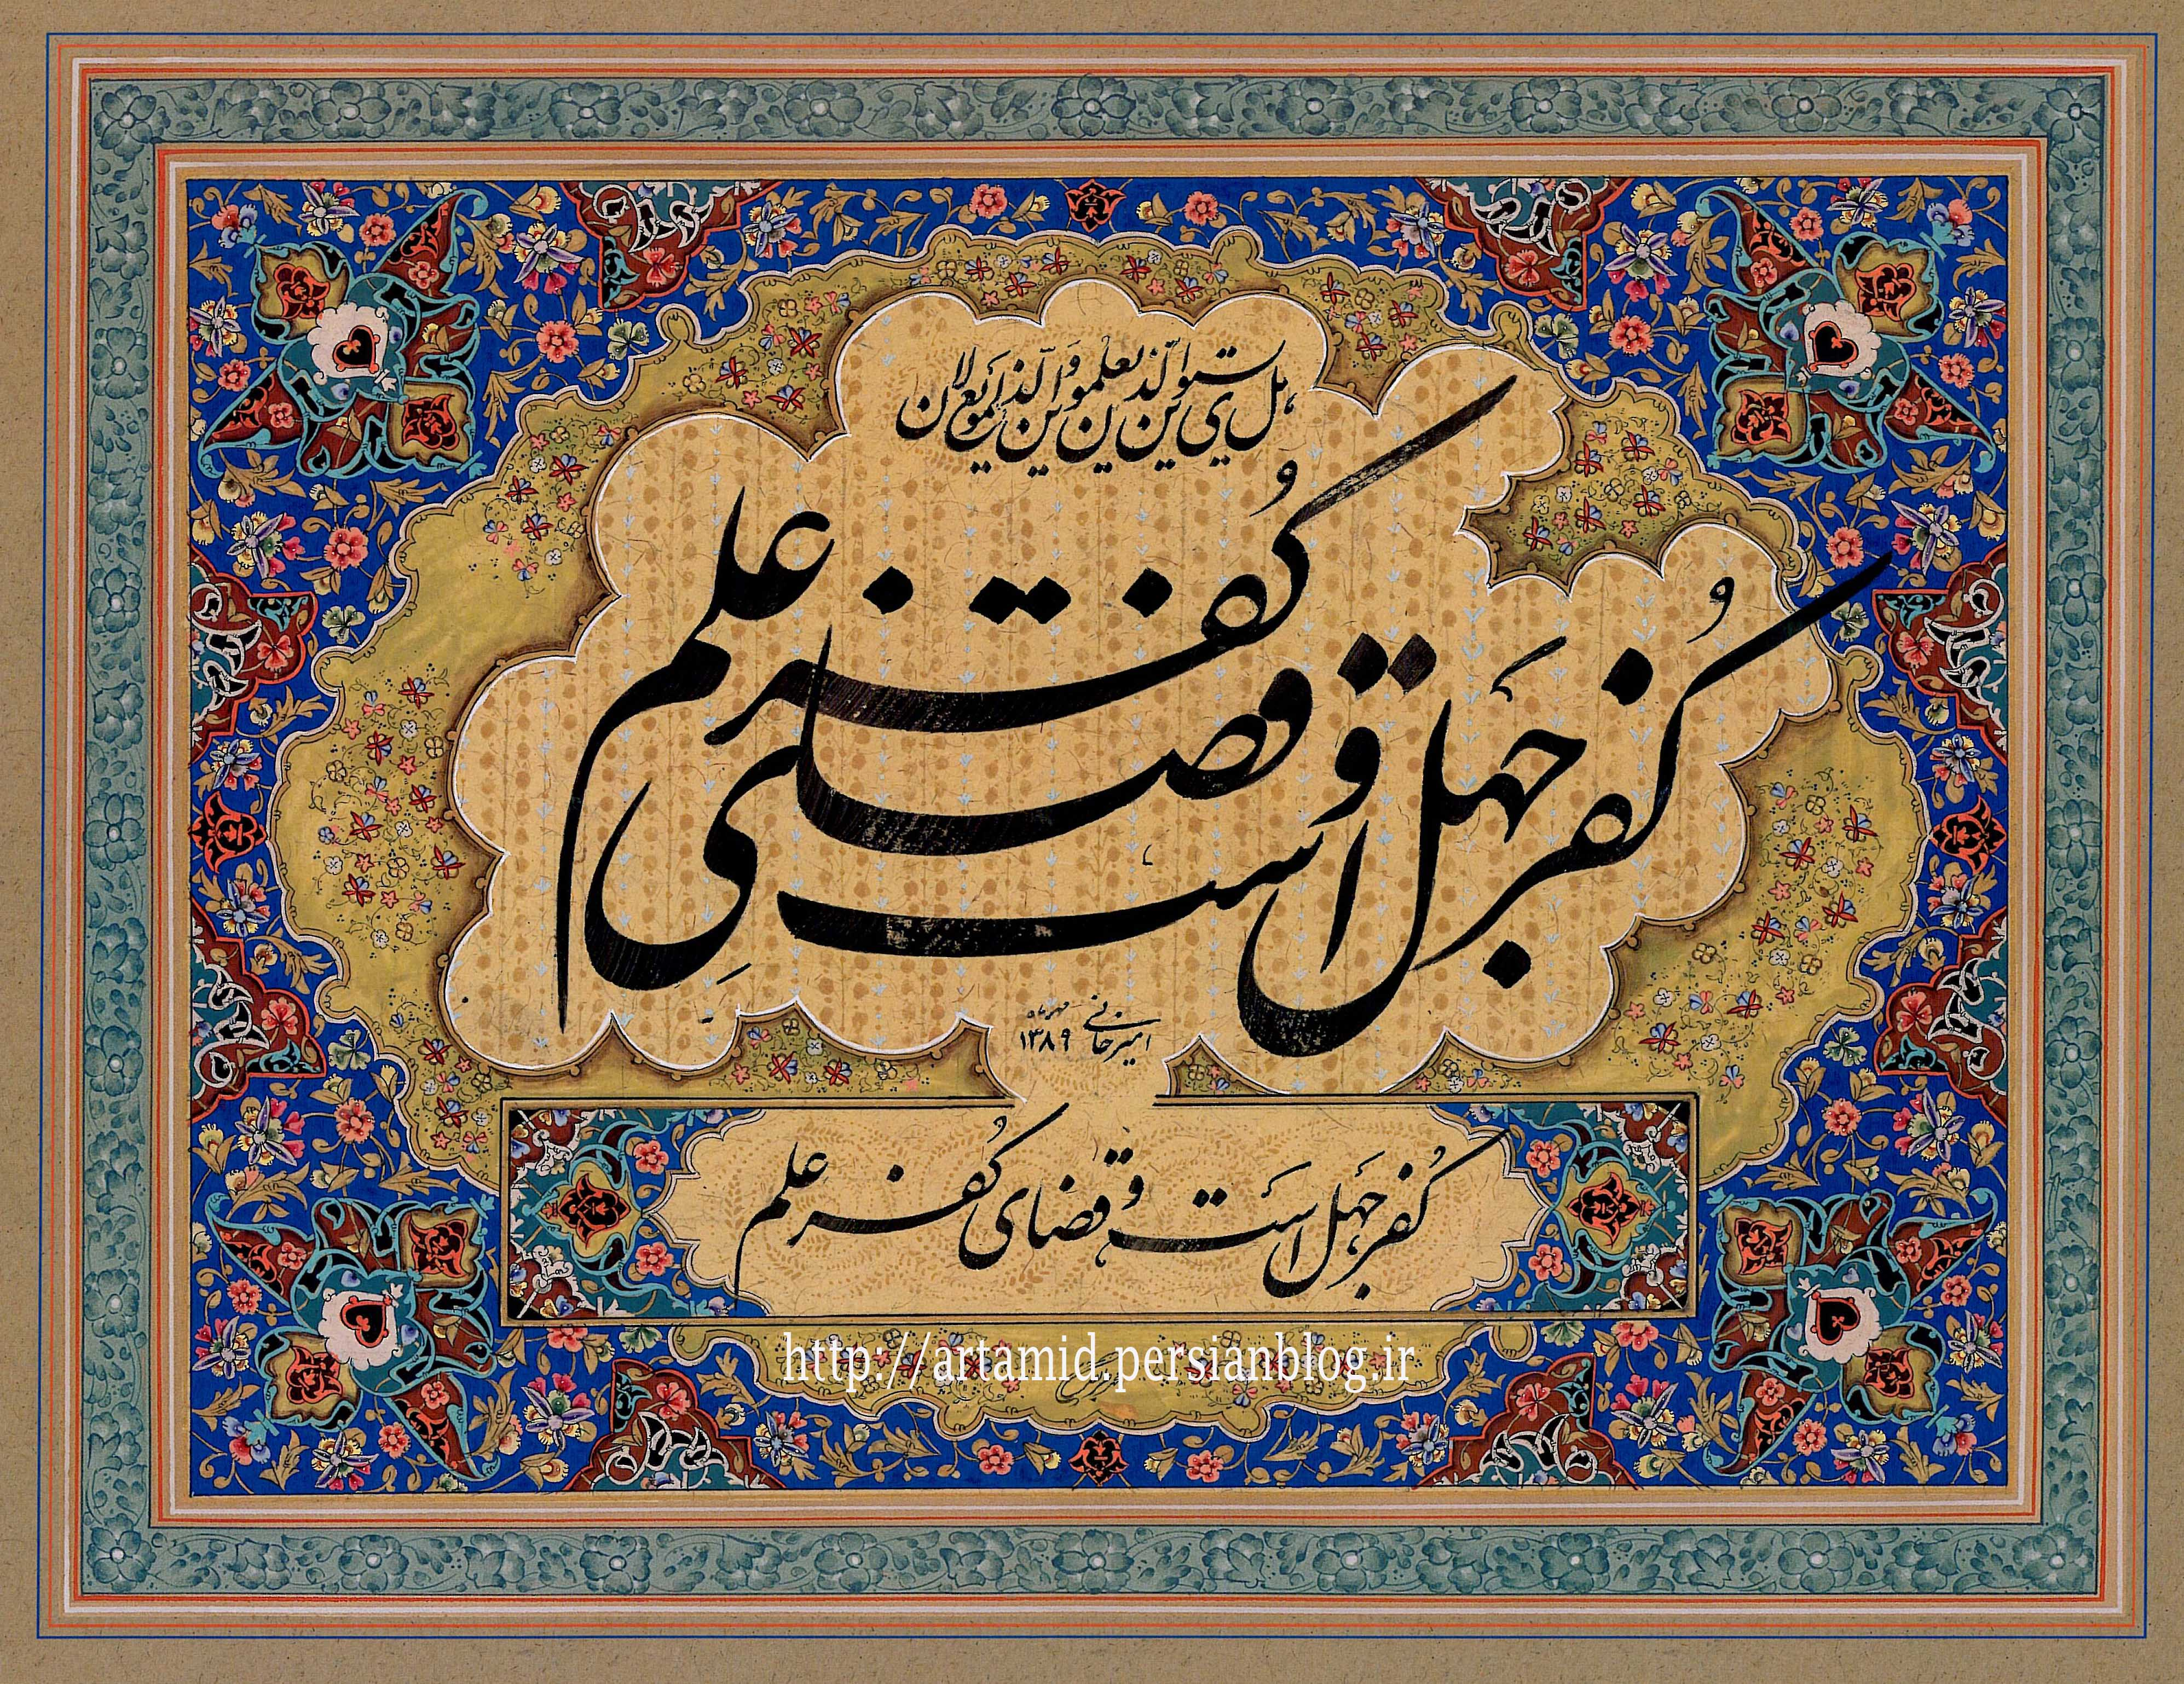 هل یستوی الّذین یعلمون وَالّذین لایَعلمون
کُفر جَهل است و قضای کُفر علم
امیرخانی مهرماه ۱۳۸۹
کُفر جَهل اسَت و قضای کُفر علم
http://artamid.persianblog.ir